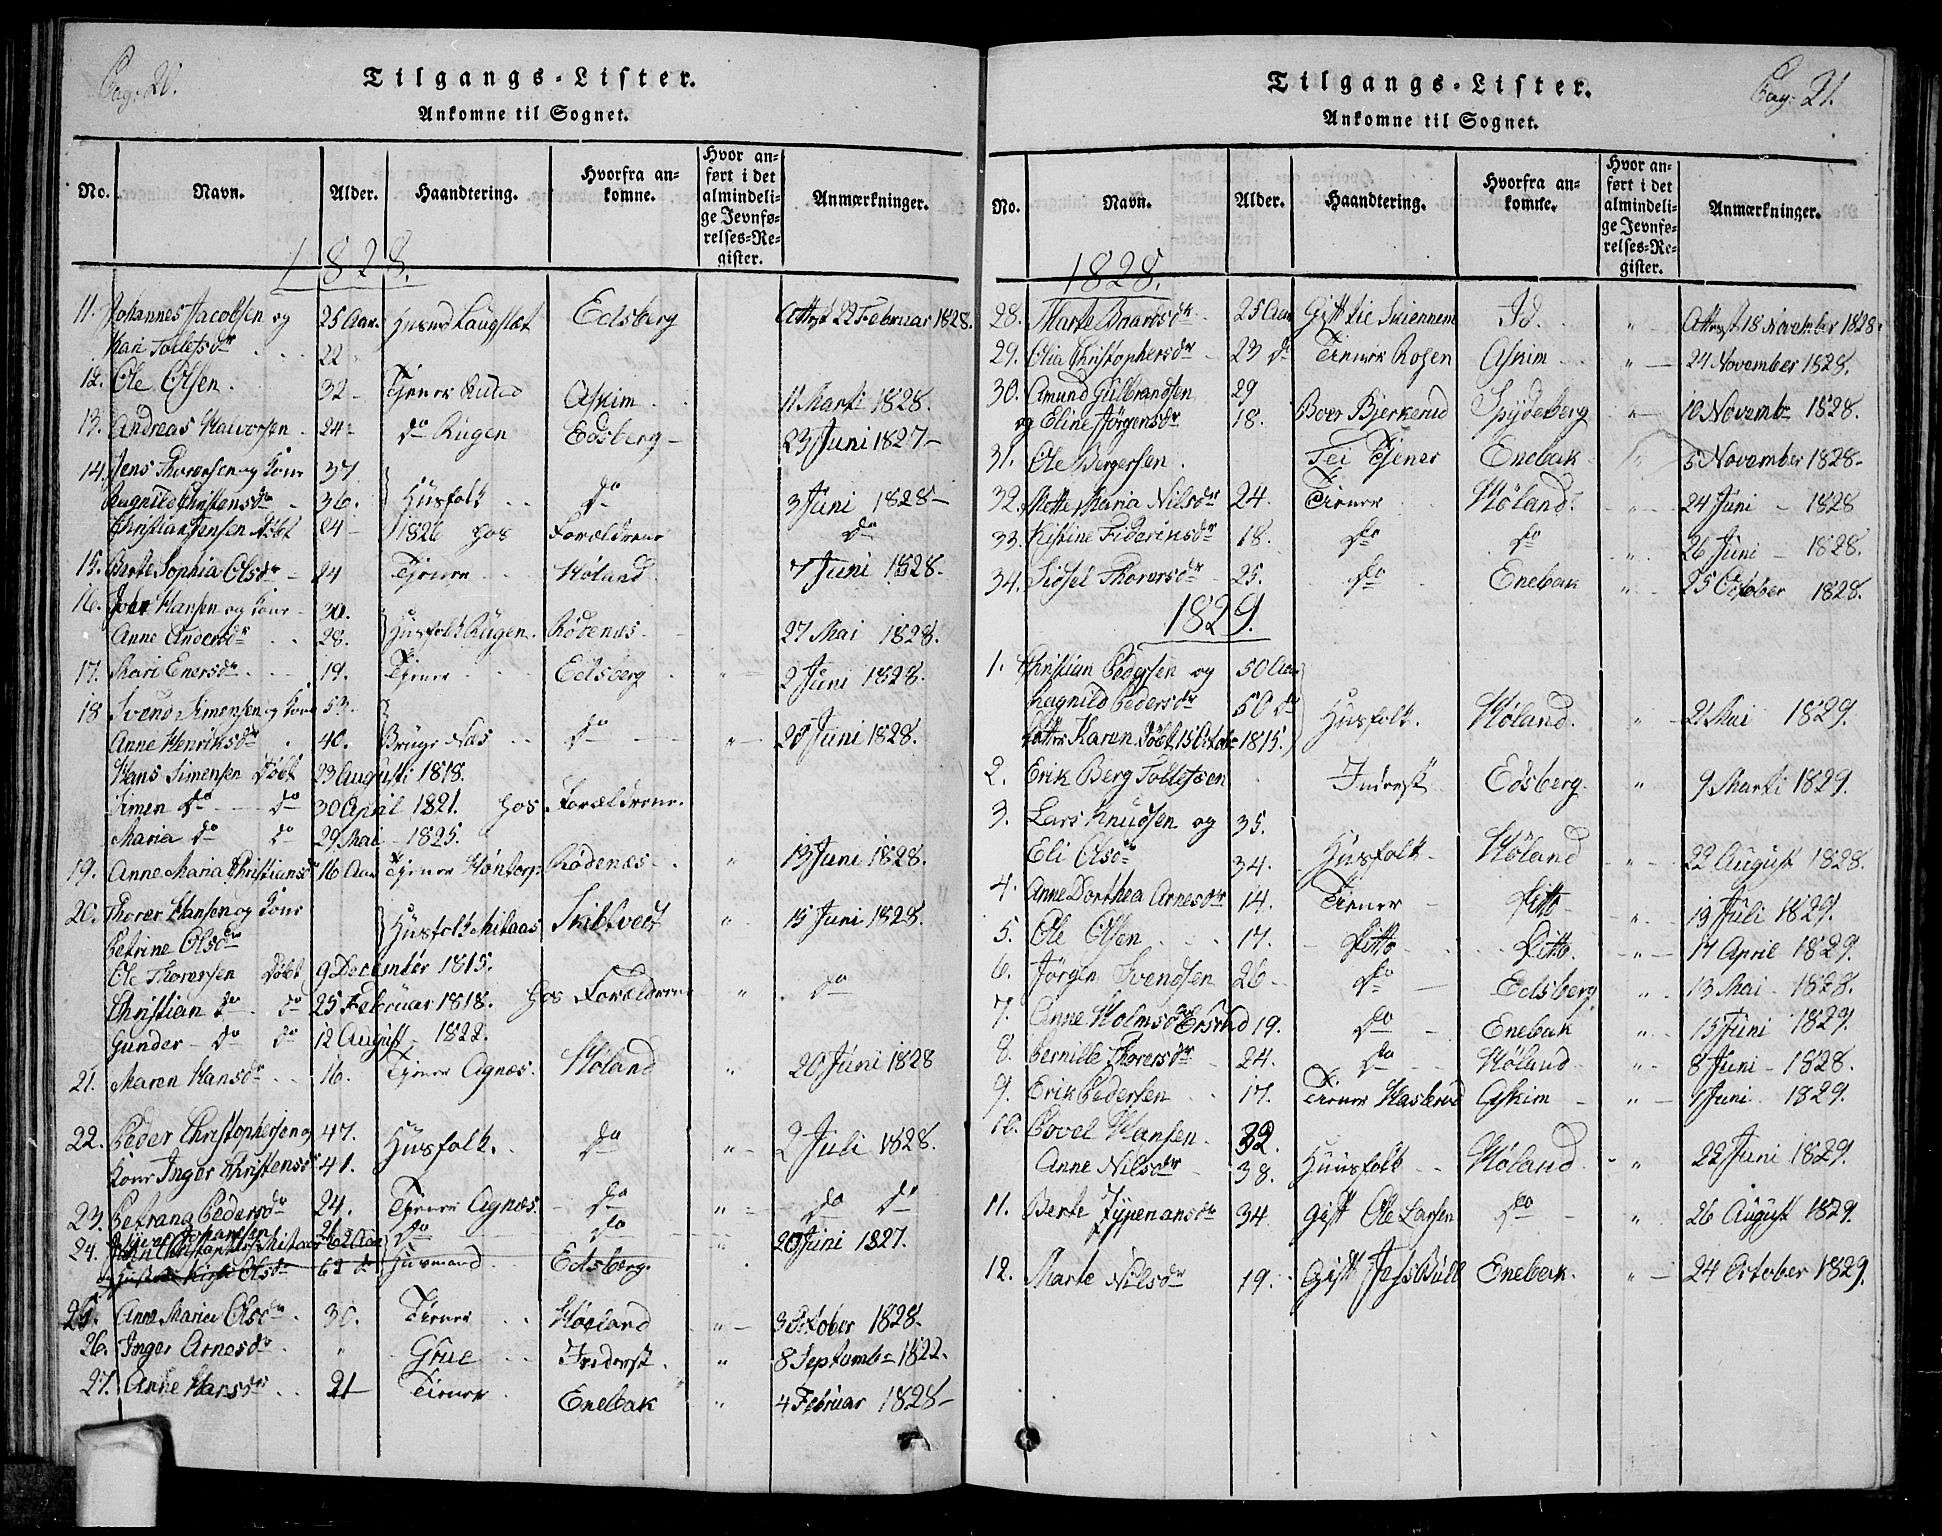 Pag. 20.
Tilgangs-Lister.
Ankomne til Sognet.
No. Navn. Alder. Haandtering. Hvorfra ankomne. Hvor anført i det almindelige Jevnførelses-Register. Anmærkninger.
1828.
11. Johannes Jacobsen og 25 Aar. Edsberg Attest 22 Februar 1828.
Kari Tollefsdr 22
12. Ole Olsen 32 Tjener Askim 11 Marti 1828.
13. Andreas Halvorsen 24 do Rügen Edsberg 23 Juni 1827
14. Jens Thoresen og Kone 37
Ragnild Christensdr 36. Husfolk do 3 Juni 1828
Christian Jensen døbt 24 1826 hos Forældrene do
15. Berte Sophia Olsdr 24 Tjener Høland 7 Juni 1828.
16. John Hansen og Kone 30.
Anne Andersdr 28. Husfolk Rügen. Rødenæs 27 Mai 1828.
17. Mari Enersdr 19. Tjener Edsberg 2 Juni 1828.
18 Svend Simensen og Kone 53.
Anne Henriksdr 40. Brugs Næs do 28 Juni 1828.
Hans Simensen Døbt 23 August 1818.
Simen do do 30 April 1821. hos Forældrene.
Maria do do 29 Mai 1825.
19. Anne Maria Christiansdr 16 Aar Tjener Høntorp Rødenæs 13 Juni 1828.
20. Thorer Hansen og Kone
Petrine Olsdr Husfolk Mitaas Skibtvedt " 15 Juni 1828.
Ole Thoresen Døbt 9 December 1815.
Christian do do 25 Februar 1818. hos Forældrene " do
Gunder do do 12 August 1822.
21. Maren Hansdr 16. Tjener Agnæs. Høland " 20 Juni 1828
22. Peder Christophersen og 47.
Kone Inger Christensdr 41. Husfolk. do " 2 Juli 1828.
23. Petrana Pedersdr 24. Tjener Agnæs. do " do do
24. Johansen 26 do do " 20 Juni 1827.
62 Aar
Olsdr 62 do Husmand Edsberg.
25. Anne Maria Olsdr 30. Tiener Høland " 3 October 1828.
26. Inger Arnesdr " Grue " 8 Septembr 1822.
27. Anne Hansdr 21 Tiener Enebak " 4 Februar 1828
Pag. 21.
Tilgangs-Lister.
Ankomne til Sognet.
No. Navn. Alder. Haandtering. Hvorfra ankomne. Hvor anført i det almindelige Jevnførelses-Register. Anmærkninger.
1828.
28. Marte Baardsdr 25 Aar Gift til Id. " Attest 18 November 1828.
29. Olia Christophersdr 23 do Tiener Rosen Askim " 24 November 1828.
30. Amund Gulbrandsen 29
og Eline Jørgensdr 18. Boer Bjerkerud Spydeberg " 10 Novembr 1828.
31. Ole Bergersen Tjener Enebak " 5 November 1828
32. Mette Maria Nilsdr 24. Tiener Høland. " 24 Juni 1828
33. Kistine Federiksdr 18. do do " 26 Juni 1828.
34. Sidsel Thorersdr 25. do Enebak " 25 October 1828.
1829.
1. Christian Pedersen og 50 Aar
Ragnild Pedersdr 50 do Husfolk. Høland. " 2 Mai 1829.
Datter Karen Døbt 15 Octobr 1815.
2. Erik Berg Tollefsen Inderst Edsberg. " 9 Marti 1829.
3. Lars Knudsen og 35.
Eli Olsdr 34. Husfolk Høland " 22 August 1828.
4. Anne Dorthea Arnesdr 14. Tiener Ditto " 19 Juli 1829.
5. Ole Olsen 17. Ditto Ditto. " 17 April 1829.
6. Jørgen Svendsen 26 do Edsberg " 13 Mai 1828.
7. Anne Holmsdr 19. do Enebak " 15 Juni 1829.
8. Pernille Thorersdr 24. do Høland " 8 Juni 1828.
9. Erik Pedersen 17. Tiener Haslerud Askim " 4 Juni 1829.
10. Povel Hansen 32.
Anne Nilsdr 38. Huusfolk Høland " 22 Juni 1829.
11. Berte 34 gift Ole Larsen do " 26 August 1829.
12. Marte Nilsdr 19. Gift Enebak. " 24 October 1829.